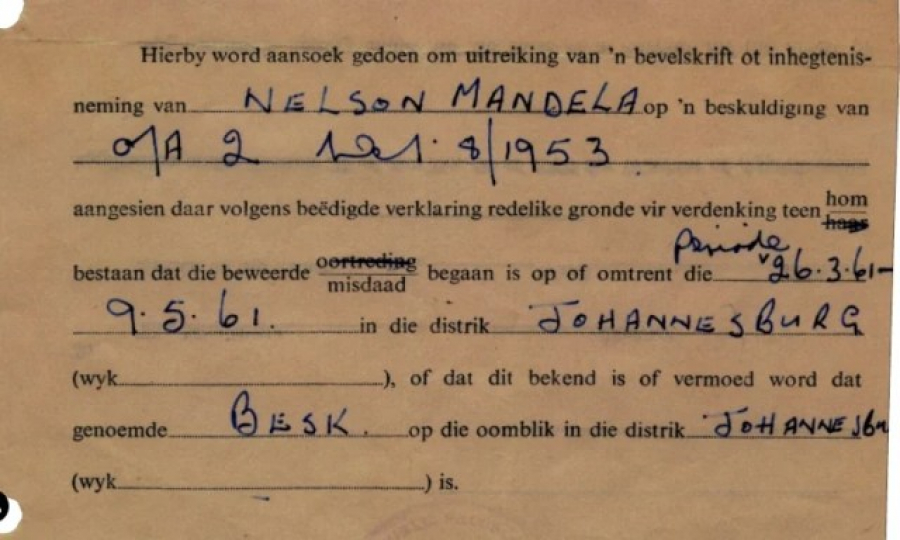 Hierby word aansoek gedoen om uitreiking van 'n bevelskrift ot inhegtenis-
neming van NELSON MANDELA op 'n beskuldiging van
o/A 2 8/1953
aangesien daar volgens beëdigde verklaring redelike gronde vir verdenking teen hom
haar
periode
bestaan dat die beweerde oortreding begaan is op of omtrent die 26.3.61-
misdaad
9.5.61. in die distrik JOHANNESBURG
(wyk), of dat dit bekend is of vermoed word dat
genoemde BESK. op die oomblik in die distrik JOHANNESBu
(wyk) is.